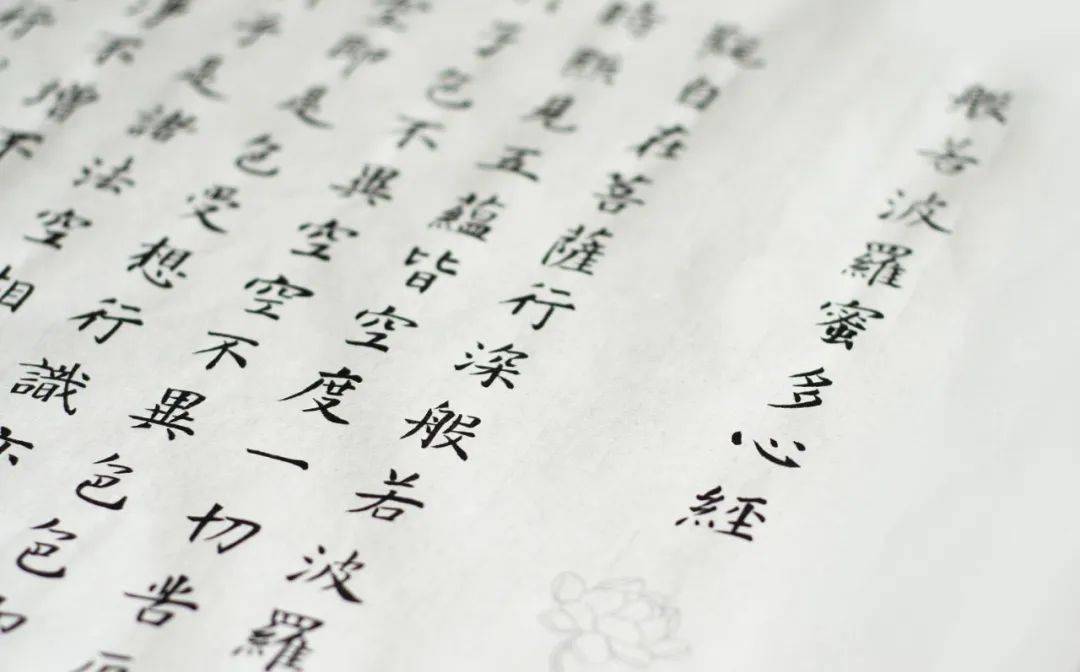 般若波羅蜜多心經
觀自在菩薩行深般若波羅
時照見五蘊皆空度一切苦厄
子色不異空空不異色色
空即是色受想行識亦
子是諸法空相
淨不增不
行